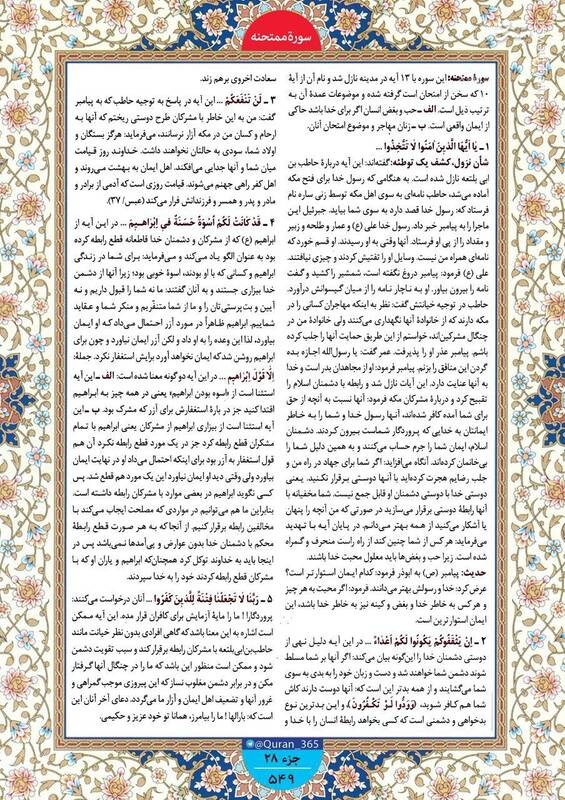 سورهٔ ممتحنه
سورهٔ ممتحنه: این سوره با ۱۳ آیه در مدینه نازل شد و نام آن از آیهٔ
۱۰ که سخن از امتحان است گرفته شده و موضوعات عمدهٔ آن به
ترتیب ذیل است. الف ـ حب و بغض انسان اگر برای خدا باشد حاکی
از ایمان واقعی است. ب ـ زنان مهاجر و موضوع امتحان آنان.
۱ ـ یَا أَیُّهَا الَّذِینَ آمَنُوا لَا تَتَّخِذُوا ...
شأن نزول، کشف یک توطئه: گفته‌اند: این آیه دربارهٔ حاطب بن
ابی بلتعه نازل شده است. به هنگامی که رسول خدا برای فتح مکه
آماده می‌شد، حاطب نامه‌ای به سوی اهل مکه توسط زنی ساره نام
فرستاد که: رسول خدا قصد دارد به سوی شما بیاید. جبرئیل این
ماجرا را به پیامبر خبر داد. رسول خدا علی (ع) و عمار و طلحه و زبیر
و مقداد را از پی او فرستاد. آنها وقتی به او رسیدند. او قسم خورد که
نامه‌ای همراه من نیست. وسایل او را تفتیش کردند و چیزی نیافتند.
علی (ع) فرمود: پیامبر دروغ نگفته است، شمشیر را کشید و گفت
نامه را بیرون بیاور. او به ناچار نامه را از میان گیسوانش درآورد.
حاطب در توجیه خیانتش گفت: نظر به اینکه مهاجران کسانی را در
مکه دارند که از خانوادهٔ آنها نگهداری می‌کنند ولی خانوادهٔ من در
چنگال مشرکین‌اند، خواستم از این طریق حمایت آنها را جلب کرده
باشم. پیامبر عذر او را پذیرفت. عمر گفت: یا رسول‌الله اجازه بده
گردن این منافق را بزنم. پیامبر فرمود: او از مجاهدان بدر است و خدا
به آنها عنایت دارد. این آیات نازل شد و رابطه با دشمنان اسلام را
تقبیح کرد و دربارهٔ مشرکان مکه فرمود: آنها نسبت به آنچه از حق
برای شما آمده کافر شده‌اند، آنها رسول خدا و شما را به خاطر
ایمانتان به خدایی که پروردگار شماست بیرون کردند. دشمنان
اسلام، ایمان شما را جرم حساب می‌کنند و به همین دلیل شما را
بی‌خانمان کرده‌اند. آنگاه می‌افزاید: اگر شما برای جهاد در راه من و
جلب رضایم هجرت کرده‌اید با آنها دوستی برقرار نکنید. یعنی
دوستی خدا با دوستی دشمنان او قابل جمع نیست. شما مخفیانه با
آنها رابطهٔ دوستی برقرار می‌سازید در صورتی که من آنچه را پنهان
یا آشکار می‌کنید از همه بهتر می‌دانم. در پایان آیه با تهدید
می‌فرماید: هر کس از شما چنین کند از راه راست منحرف و گمراه
شده است. زیرا حب و بغض‌ها باید معلول محبت خدا باشند.
حدیث: پیامبر (ص) به ابوذر فرمود: کدام ایمان استوارتر است؟
عرض کرد: خدا و رسولش بهتر می‌دانند. فرمود: اگر محبت به هر چیز
و هر کس به خاطر خدا و بغض و کینه نیز به خاطر خدا باشد، این
ایمان استوارترین است.
۲ ـ إِنْ یَثْقَفُوکُمْ یَکُونُوا لَکُمْ أَعْدَاءً ... در این آیه دلیل نهی از
دوستی دشمنان خدا را این‌گونه بیان می‌کند: اگر آنها بر شما مسلط
شوند دشمن شما خواهند شد و دست و زبان خود را به بدی به سوی
شما می‌گشایند و از همه بدتر این است که: آنها دوست دارند کاش
شما هم کافر شوید، (وَوَدُّوا لَوْ تَکْفُرُونَ)، و این بدترین نوع
بدخواهی و دشمنی است که کسی بخواهد رابطهٔ انسان را با خدا و
سعادت اخروی برهم زند.
۳ ـ لَنْ تَنْفَعَکُمْ ... این آیه در پاسخ به توجیه حاطب که به پیامبر
گفت: من به این خاطر با مشرکان طرح دوستی ریختم که آنها به
ارحام و کسان من در مکه آزار نرسانند، می‌فرماید: هرگز بستگان و
اولاد شما، سودی به حالتان نخواهند داشت. خداوند روز قیامت
میان شما و آنها جدایی می‌افکند. اهل ایمان به بهشت می‌روند و
اهل کفر راهی جهنم می‌شوند. قیامت روزی است که آدمی از برادر و
مادر و پدر و همسر و فرزندانش فرار می‌کند (عبس/ ۳۷).
۴ ـ قَدْ کَانَتْ لَکُمْ أُسْوَةٌ حَسَنَةٌ فِی إِبْرَاهِیمَ ... در این آیه از
ابراهیم (ع) که از مشرکان و دشمنان خدا قاطعانه قطع رابطه کرده
بود به عنوان الگو یاد می‌کند و می‌فرماید: برای شما در زندگی
ابراهیم و کسانی که با او بودند، اسوهٔ خوبی بود؛ زیرا آنها از دشمن
خدا بیزاری جستند و به آنان گفتند: ما نه شما را قبول داریم و نه
آیین و بت‌پرستی‌تان را و ما از شما متنفّریم و منکر شما و عقاید
شماییم. ابراهیم ظاهراً در مورد آزر احتمال می‌داد که او ایمان
بیاورد، لذا این وعده را به او داد و لکن آزر ایمان نیاورد و چون برای
ابراهیم روشن شد که ایمان نخواهد آورد برایش استغفار نکرد. جملهٔ:
إِلَّا قَوْلَ إِبْرَاهِیمَ ... در این آیه دو گونه معنا شده است: الف ـ این آیه
استثنا است از «اسوه بودن ابراهیم» یعنی در همه چیز به ابراهیم
اقتدا کنید جز در بارهٔ استغفارش برای آزر که مشرک بود. ب ـ این
آیه استثنا است از بیزاری ابراهیم از مشرکان یعنی ابراهیم با تمام
مشرکان قطع رابطه کرد جز در یک مورد قطع رابطه نکرد آن هم
قول استغفار به آزر بود برای اینکه احتمال می‌داد او در نهایت ایمان
بیاورد ولی وقتی دید او ایمان نیاورد این یک مورد هم قطع شد. پس
کسی نگوید ابراهیم در بعضی موارد با مشرکان رابطه داشته است.
بنابراین ما هم می‌توانیم در مواردی که مصلحت ایجاب می‌کند با
مخالفین رابطه برقرار کنیم. از آنجا که به هر صورت قطع رابطهٔ
محکم با دشمنان خدا بدون عوارض و پی‌آمدها نمی‌باشد پس در
اینجا باید به خداوند توکل کرد همچنان‌که ابراهیم و یاران او که با
مشرکان قطع رابطه کردند خود را به خدا سپردند.
۵ ـ رَبَّنَا لَا تَجْعَلْنَا فِتْنَةً لِلَّذِینَ کَفَرُوا ... آنان درخواست می‌کنند:
پروردگارا ! ما را مایهٔ آزمایش برای کافران قرار مده. این آیه ممکن
است اشاره به این معنا باشد که گاهی افرادی بدون نظر خیانت مانند
حاطب‌بن‌ابی‌بلتعه با مشرکان رابطه برقرار کند و سبب تقویت دشمن
شود و ممکن است منظور این باشد که ما را در چنگال آنها گرفتار
مکن و در برابر دشمن مغلوب نساز که این پیروزی موجب گمراهی و
غرور آنها و تضعیف اهل ایمان و آزار ما می‌گردد. دعای آخر آنان این
است که: بارالها ! ما را بیامرز، همانا تو خود عزیز و حکیمی.
@Quran_365
جزء ۲۸
۵۴۹